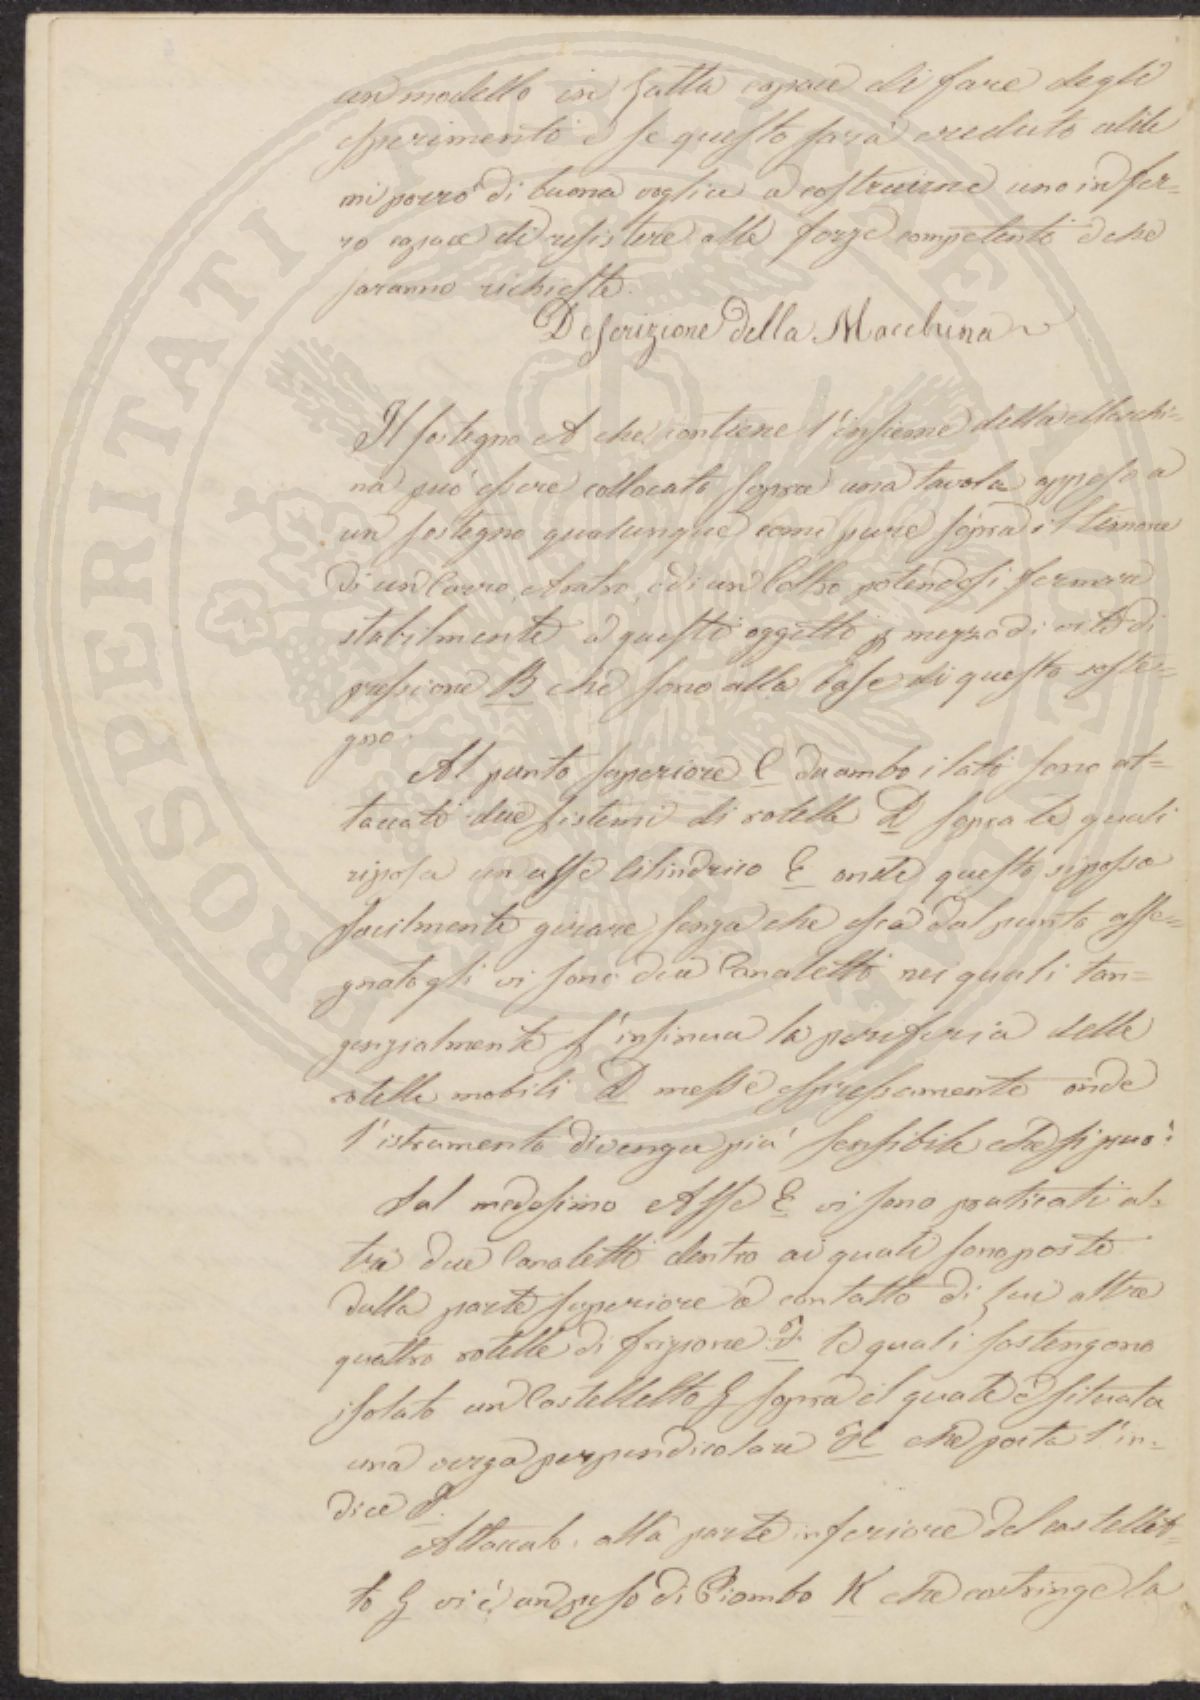 un modello in Latta capace di fare degli
esperimenti e se questo sarà creduto utile
mi porrò di buona voglia a costruirne uno in fer=
ro capace di resistere alle forze competenti e che
saranno richieste.
Descrizione della Macchina
Il sostegno A che contiene l'insieme della Macchi=
na può essere collocato sopra una tavola appeso a
un sostegno qualunque come pure sopra il timone
di un Carro, Aratro, o di un Coltro potendosi fermare
stabilmente a questi oggetti p mezzo di vite di
pressione B che sono alla base di questo soste=
gno.
Al punto superiore C da ambo i lati sono at=
taccati due sistemi di rotelle D sopra le quali
riposa un asse Cilindrico E onde questo si possa
facilmente girare senza che esca dal punto asse=
gnatogli vi sono due Canaletti nei quali tan=
genzialmente s'insinua la periferia delle
rotelle mobili D messe espressamente onde
l'istrumento divenga più sensibile che si può.
Sul medesimo Asse E vi sono praticati al=
tri due Canaletti dentro ai quali sono poste
dalla parte superiore a contatto di Lui altre
quattro rotelle di frizione F le quali sostengono
isolato un Castelletto G sopra il quale è situata
una verga perpendicolare H che porta l'in=
dice I.
Attaccato alla parte inferiore del castellet=
to G vi è un peso di Piombo K che costringe la
PROSPERITATI PVBLICAE AVGENDAE